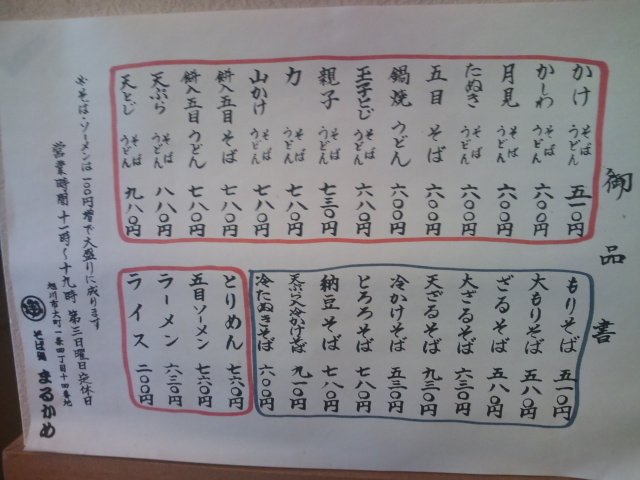 御品書
かけ そば うどん 五一〇円
かしわ そば うどん 六〇〇円
月見 そば うどん 六〇〇円
たぬき そば うどん 六〇〇円
五目 そば 六〇〇円
鍋焼 うどん 六〇〇円
玉子とじ そば うどん 六八〇円
親子 そば うどん 七三〇円
力 そば うどん 七八〇円
山かけ そば うどん 七八〇円
餅入五目 そば 七八〇円
餅入五目 うどん 七八〇円
天ぷら そば うどん 八八〇円
天とじ そば うどん 九八〇円
もりそば 五一〇円
大もりそば 五八〇円
ざるそば 五八〇円
大ざるそば 六三〇円
天ざるそば 九三〇円
冷かけそば 五三〇円
とろろそば 七八〇円
納豆そば 七八〇円
天ぷら入冷かけそば 九一〇円
冷たぬきそば 六〇〇円
とりめん 七六〇円
五目ソーメン 七六〇円
ラーメン 六三〇円
ライス 二〇〇円
※そば・ソーメンは一〇〇円増で大盛りに成ります
営業時間 十一時〜十九時 第三日曜日定休日
旭川市大町一条四丁目十四番地
そば処 まるかめ